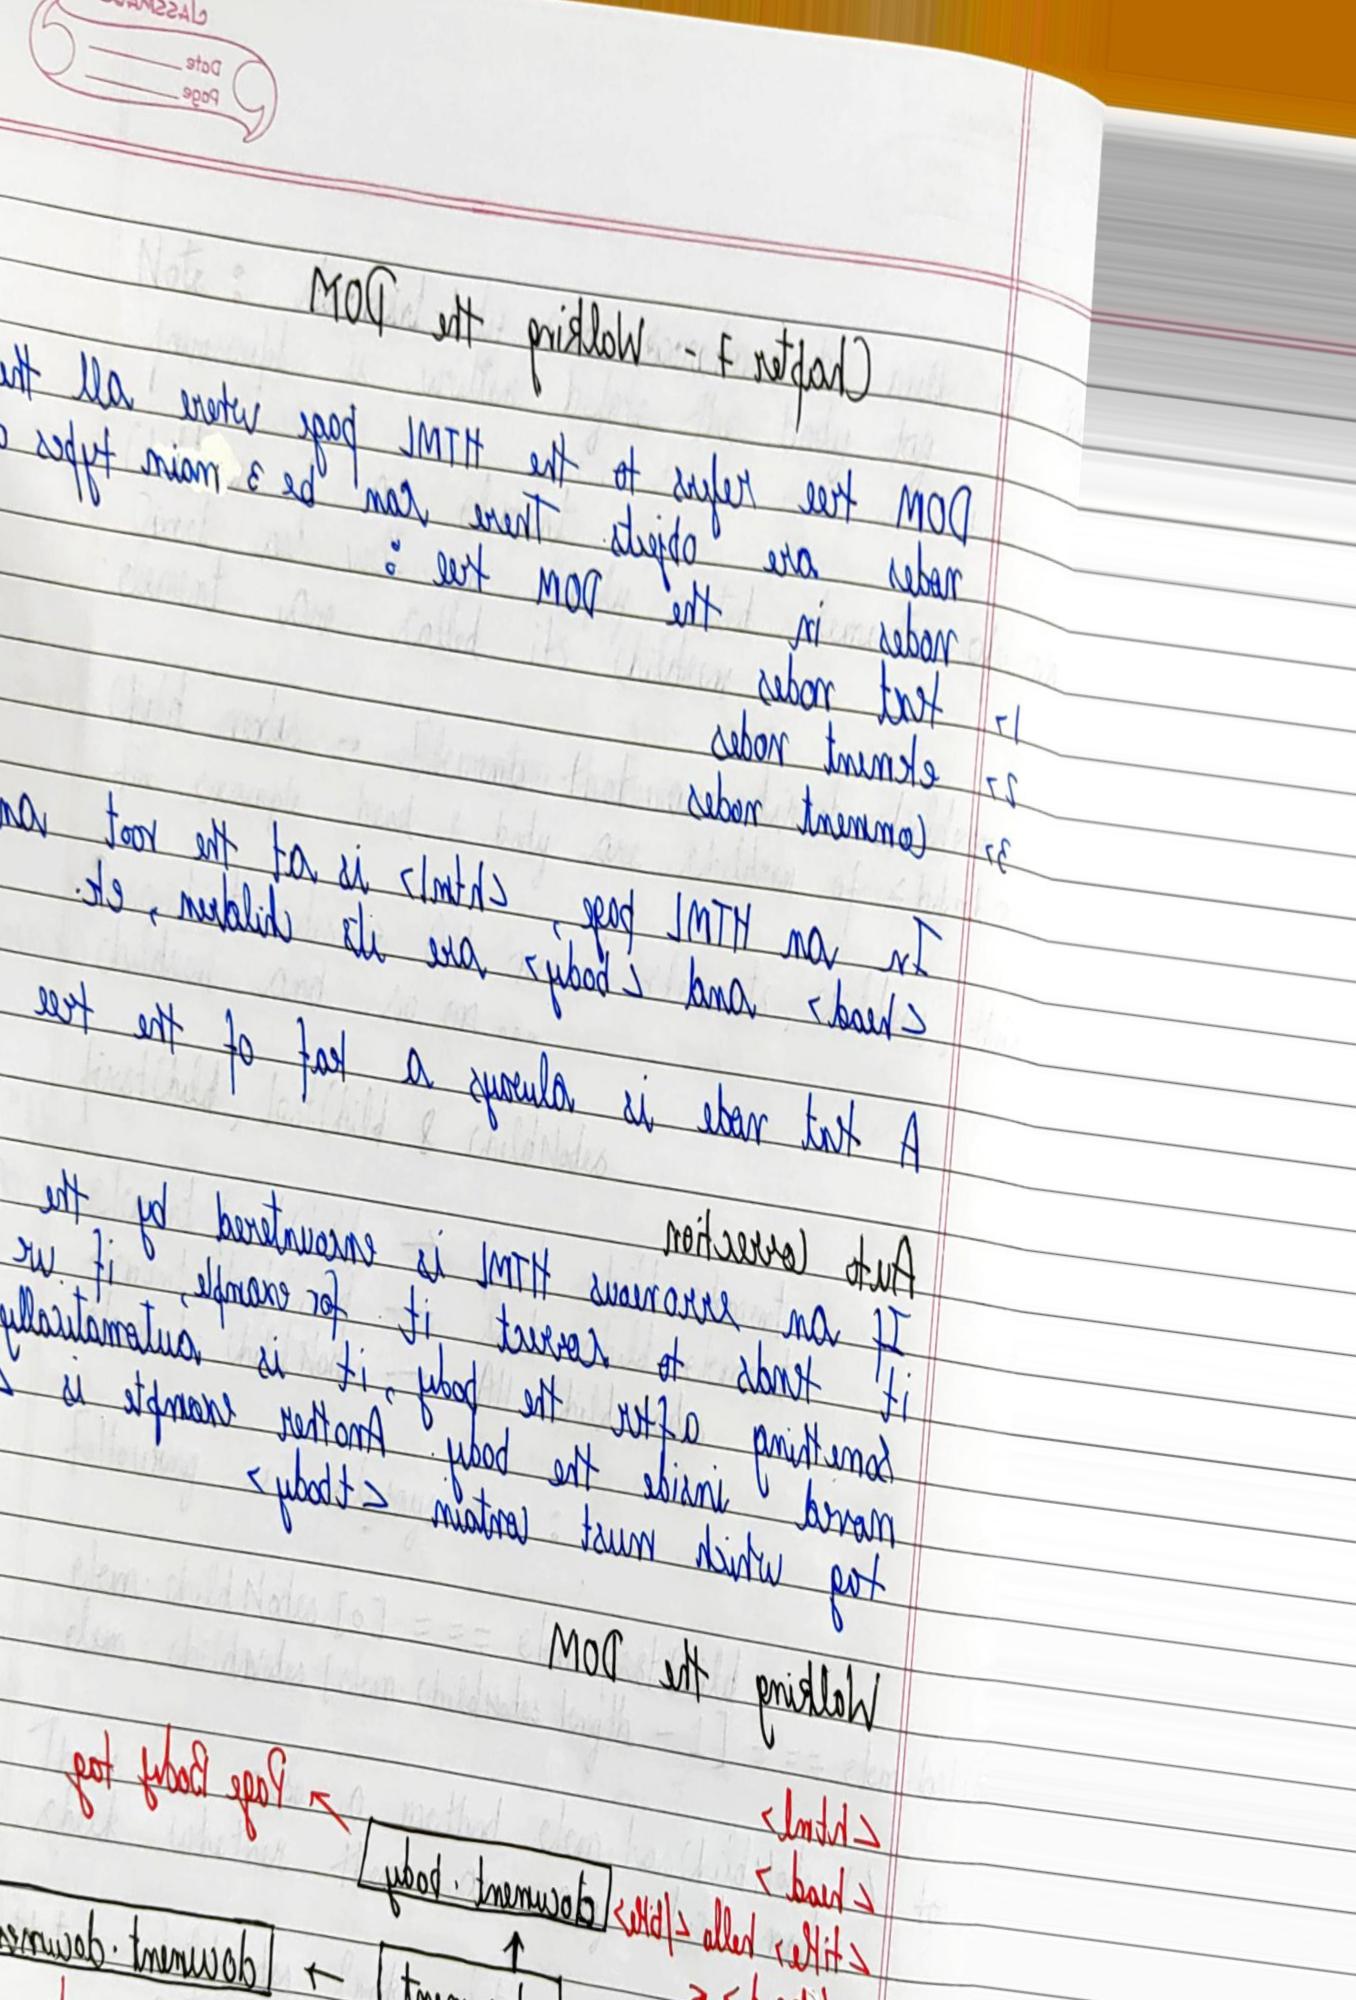 classmate
Date
Page
Chapter 7 - Walking the DOM
DOM tree refers to the HTML page where all the
nodes are objects. There can be 3 main types o
nodes in the DOM tree :
1> text nodes
2> element nodes
3> Comment nodes
In an HTML page, <html> is at the root an
<head> and <body> are its children, etc.
A text node is always a leaf of the tree
Auto correction
If an erroneous HTML is encountered by the
it tends to correct it. for example, if we
something after the body, it is automatically
moved inside the body. Another example is <
tag which must contain <tbody>
Walking the DOM
<html>
<head>
<title> hello </title>
document.body → Page Body tag
document.docume